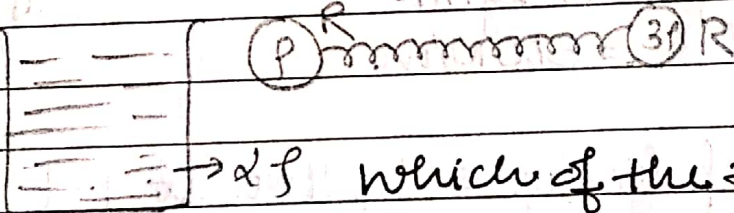 R
ρ 3ρ R
→ 2ρ which of the